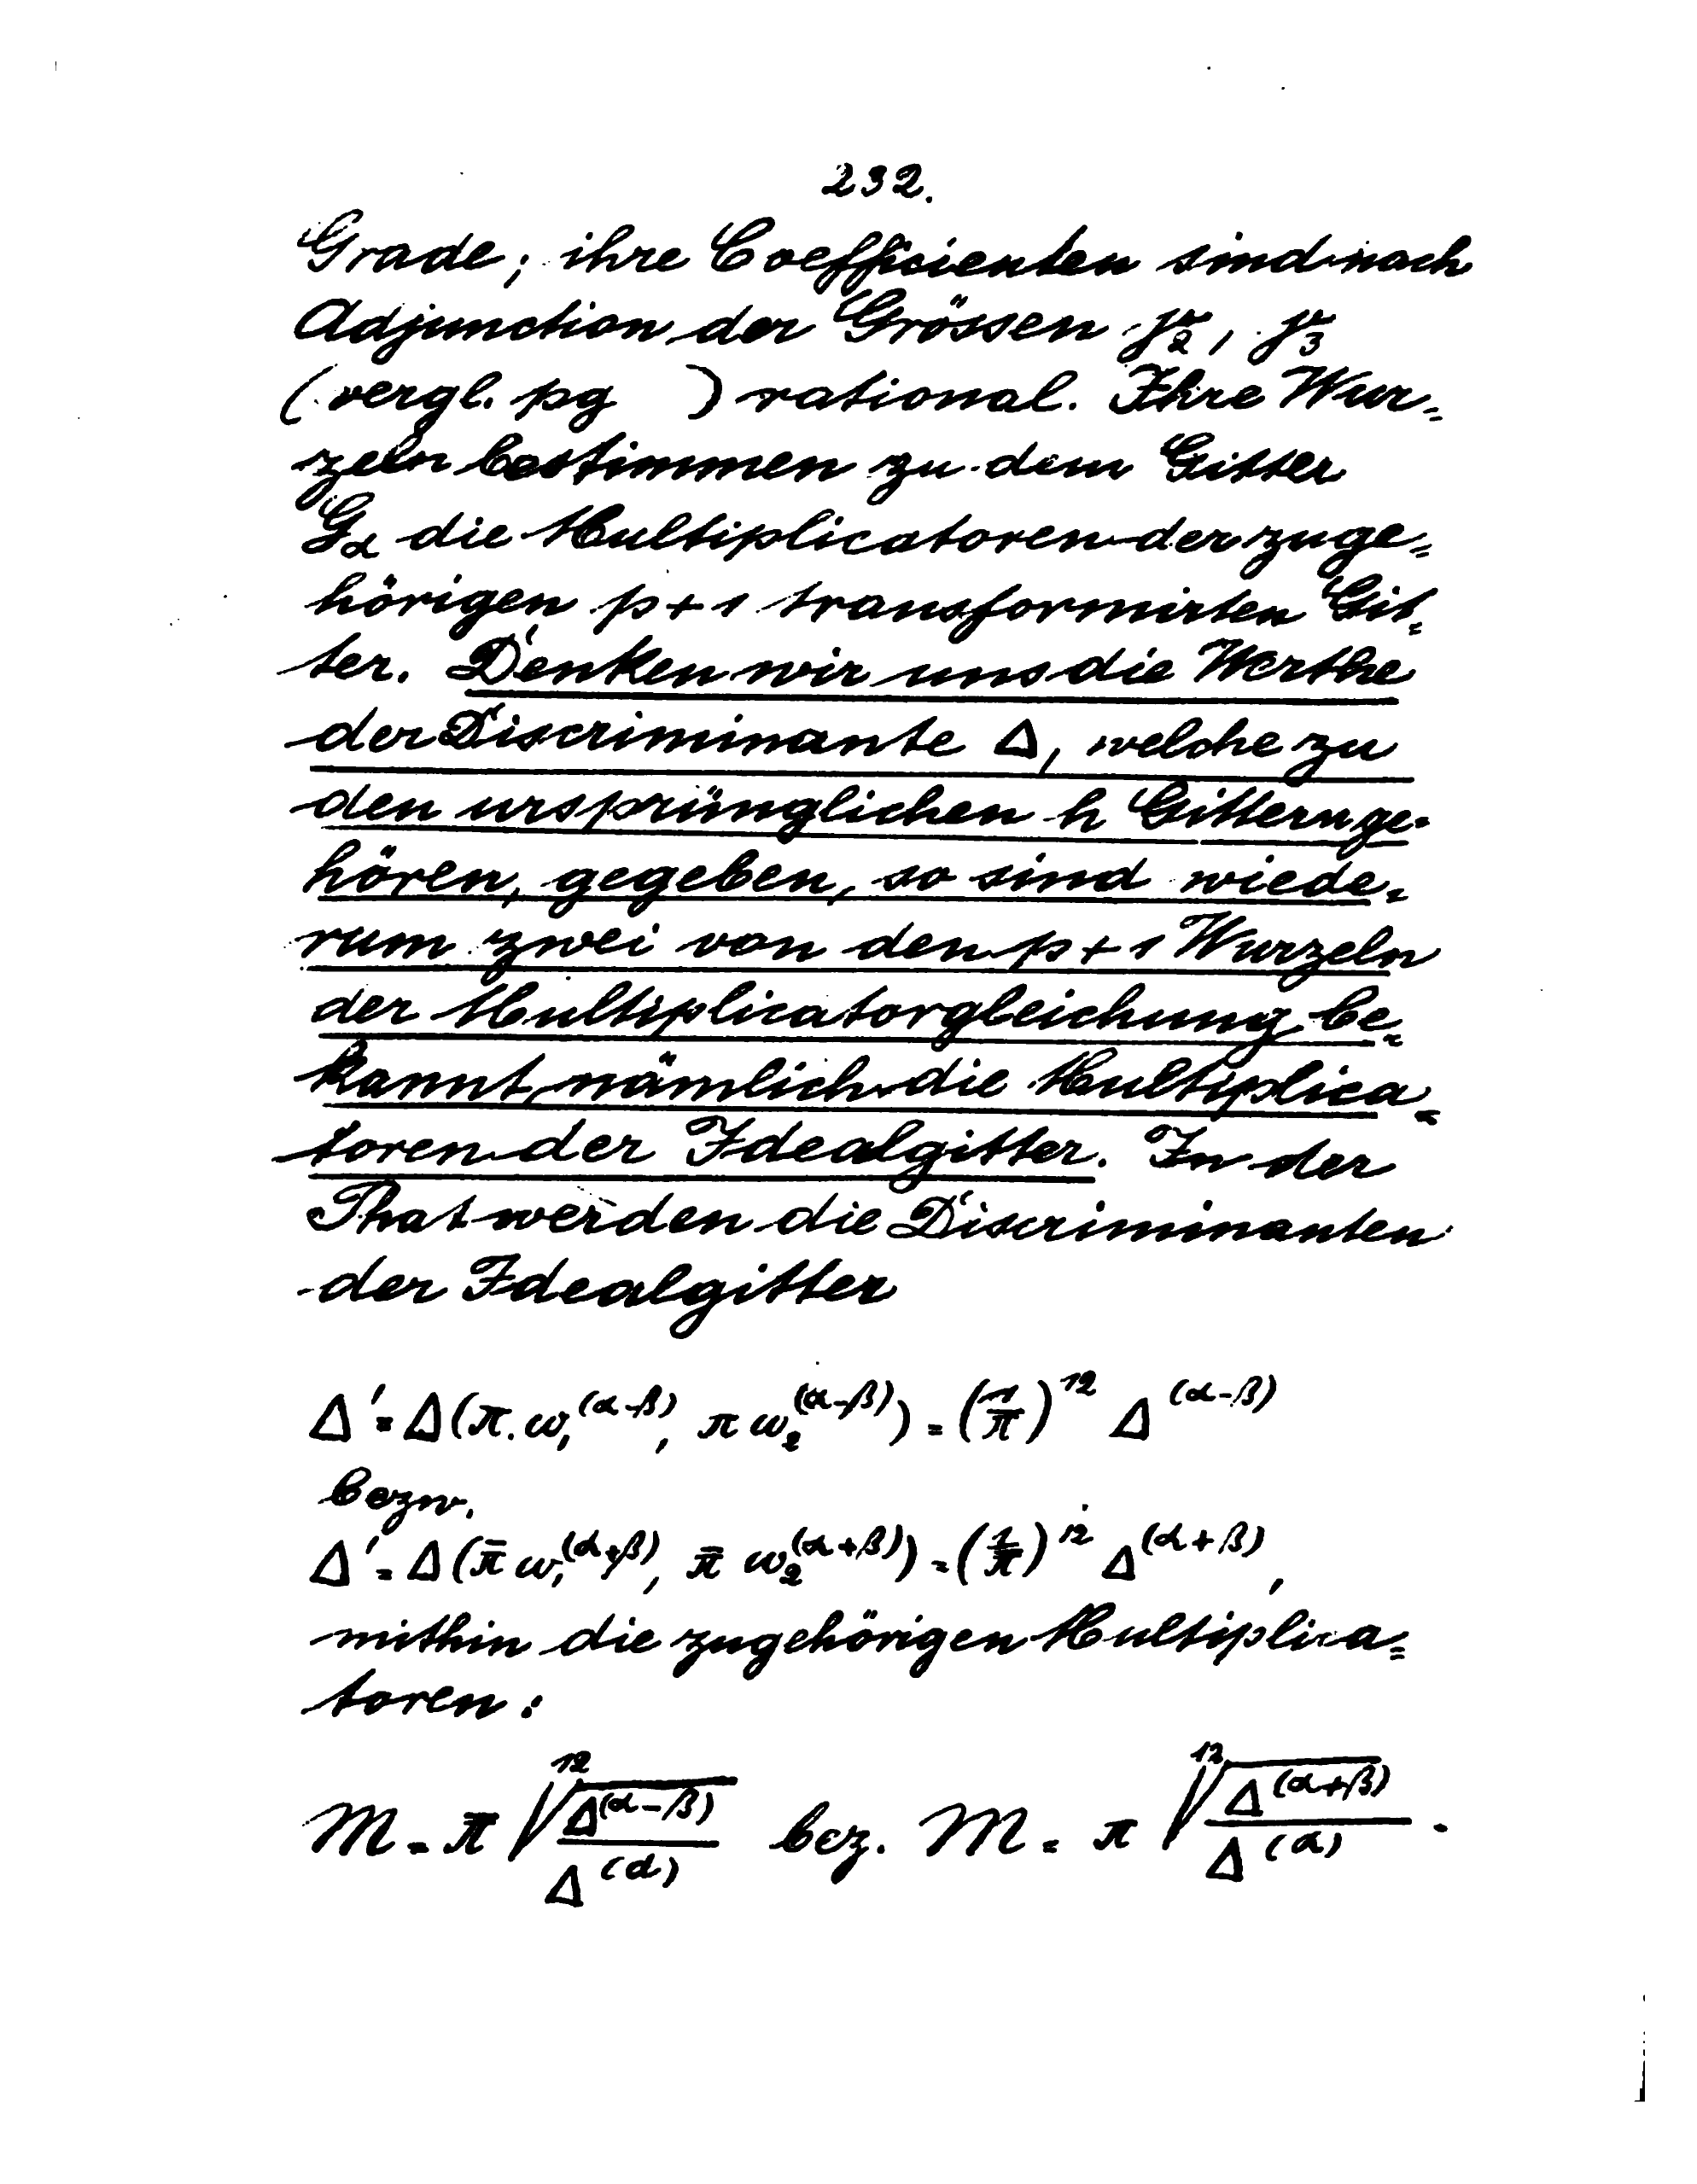 232.
Grade; ihre Coefficienten sind nach
Adjunction der Grössen γ₂, γ₃
(vergl. pg ) rational. Ihre Wur=
zeln bestimmen zu dem Gitter
G_α die Multiplicatoren der zuge=
hörigen p+1 transformirten Git=
ter. Denken wir uns die Werthe
der Discriminante Δ, welche zu
den ursprünglichen h Gittern ge=
hören, gegeben, so sind wiede=
rum zwei von den p+1 Wurzeln
der Multiplicatorgleichung be=
kannt, nämlich die Multiplica=
toren der Idealgitter. In der
That werden die Discriminanten
der Idealgitter
Δ' = Δ(π.ω₁^(α-β), π ω₂^(α-β)) = (1/π)^12 Δ^(α-β)
bezw.
Δ' = Δ(π̄ ω₁^(α+β), π̄ ω₂^(α+β)) = (1/π̄)^12 Δ^(α+β),
mithin die zugehörigen Multiplica=
toren:
M = π̄ ¹²√(Δ^(α-β)/Δ^(α)) bez. M = π ¹²√(Δ^(α+β)/Δ^(α)).